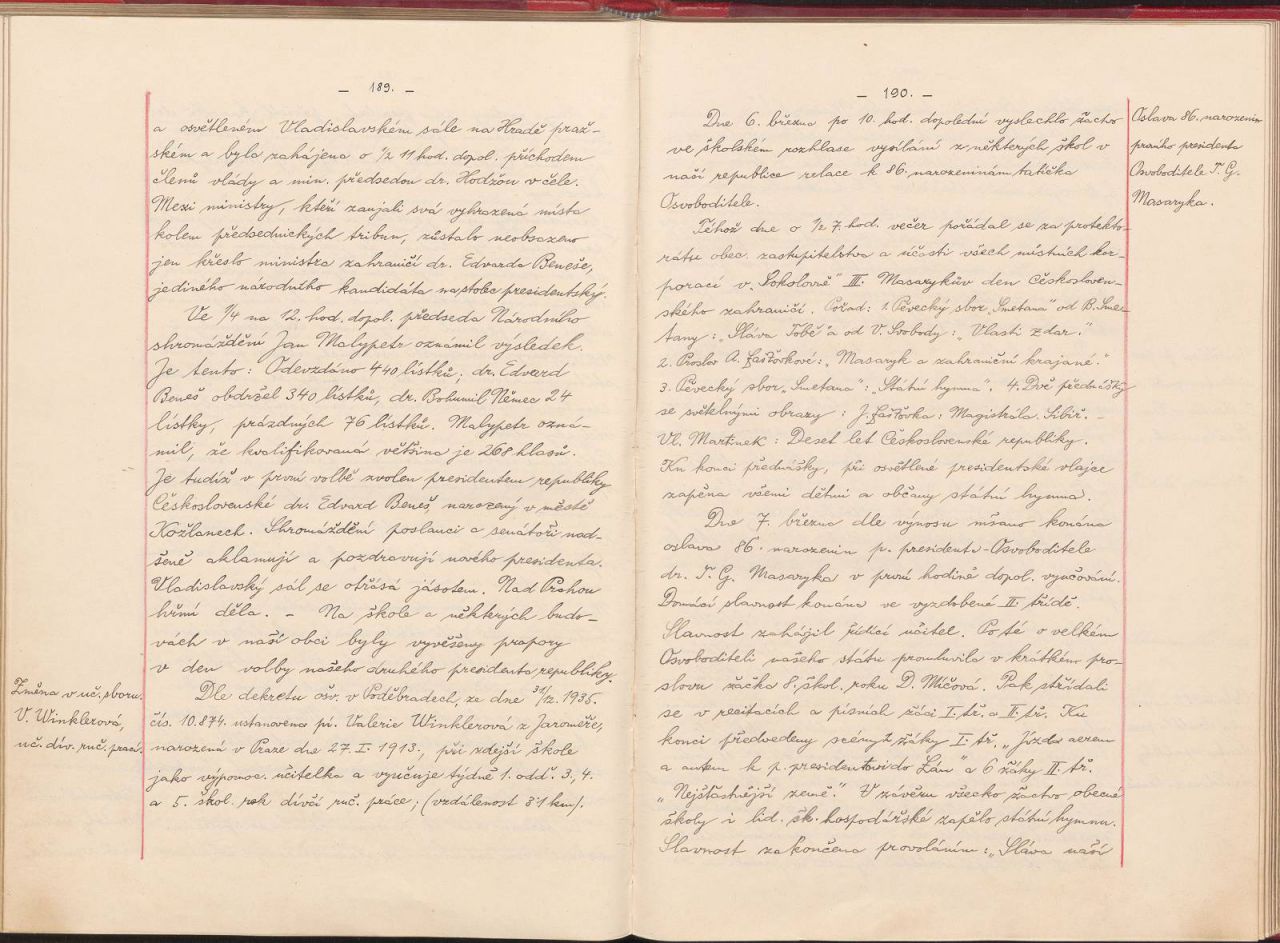 — 189. —
a osvětleném Vladislavském sále na Hradě praž-
ském a byla zahájena o 1/2 11 hod. dopol. příchodem
členů vlády a min. předsedou dr. Hodžou v čele.
Mezi ministry, kteří zaujali svá vyhrazená místa
kolem předsednických tribun, zůstalo neobsazeno
jen křeslo ministra zahraničí dr. Edvarda Beneše,
jediného národního kandidáta na stolec presidentský.
Ve 1/4 na 12. hod. dopol. předseda Národního
shromáždění Jan Malypetr oznámil výsledek.
Je tento: Odevzdáno 440 lístků; dr. Edvard
Beneš obdržel 340 lístků, dr. Bohumil Němec 24
lístky, prázdných 76 lístků. Malypetr ozná-
mil, že kvalifikovaná většina je 268 hlasů.
Je tudíž v první volbě zvolen presidentem republiky
Československé dr. Edvard Beneš, narozený v městě
Kožlanech. Shromáždění poslanci a senátoři nad-
šeně aklamují a pozdravují nového presidenta.
Vladislavský sál se otřásá jásotem. Nad Prahou
hřmí děla. – Na škole a některých budo-
vách v naší obci byly vyvěšeny prapory
v den volby našeho druhého presidenta republiky.
Změna v uč. sboru.
V. Winklerová,
uč. dív. ruč. prací.
Dle dekretu ošv. v Poděbradech, ze dne 31/12. 1935.
čís. 10.874. ustanovena pí. Valerie Winklerová z Jaroměře,
narozená v Praze dne 27. I. 1913., při zdejší škole
jako výpomoc. učitelka a vyučuje týdně 1. odd. 3., 4.
a 5. škol. rok dívčí ruč. práce; (vzdálenost 31 km).
— 190. —
Oslava 86. narozenin
prvního presidenta
Osvoboditele T. G.
Masaryka.
Dne 6. března po 10. hod. dopolední vyslechlo žactvo
ve školském rozhlase vysílání z některých škol v
naší republice relace k 86. narozeninám tatíčka
Osvoboditele.
Téhož dne o 1/2 7. hod. večer pořádal se za protekto-
rátu obec. zastupitelstva a účasti všech místních kor-
porací v „Sokolovně“ III. Masarykův den Českosloven-
ského zahraničí. Pořad: 1. Pěvecký sbor „Smetana“ od B. Sme-
tany: „Sláva Tobě“ a od V. Svobody: „Vlasti zdar.“
2. Proslov A. Laštovkové: „Masaryk a zahraniční krajané.“
3. Pěvecký sbor „Smetana“: „Státní hymna“. 4. Dvě přednášky
se světelnými obrazy: J. Laštovka: Magistrála. Sibiř. –
Vl. Martinek: Deset let Československé republiky.
Ku konci přednášky, při osvětlené presidentské vlajce
zapěna všemi dětmi a občany státní hymna.
Dne 7. března dle výnosu mšano konána
oslava 86. narozenin p. presidenta-Osvoboditele
dr. T. G. Masaryka v první hodině dopol. vyučování.
Domácí slavnost konána ve vyzdobené II. třídě.
Slavnost zahájil řídící učitel. Po té o velkém
Osvoboditeli našeho státu promluvila v krátkém pro-
slovu žačka 8. škol. roku D. Míčová. Pak střídali
se v recitacích a písních žáci I. tř. a II. tř. Ku
konci předvedeny scény: žáky I. tř. „Jízda aerem
a autem k p. presidentovi do Lán“ a 6 žáky II. tř.
„Nejšťastnější země.“ V závěru všecko žactvo obecné
školy i lid. šk. hospodářské zapělo státní hymnu.
Slavnost zakončena provoláním: „Sláva naší